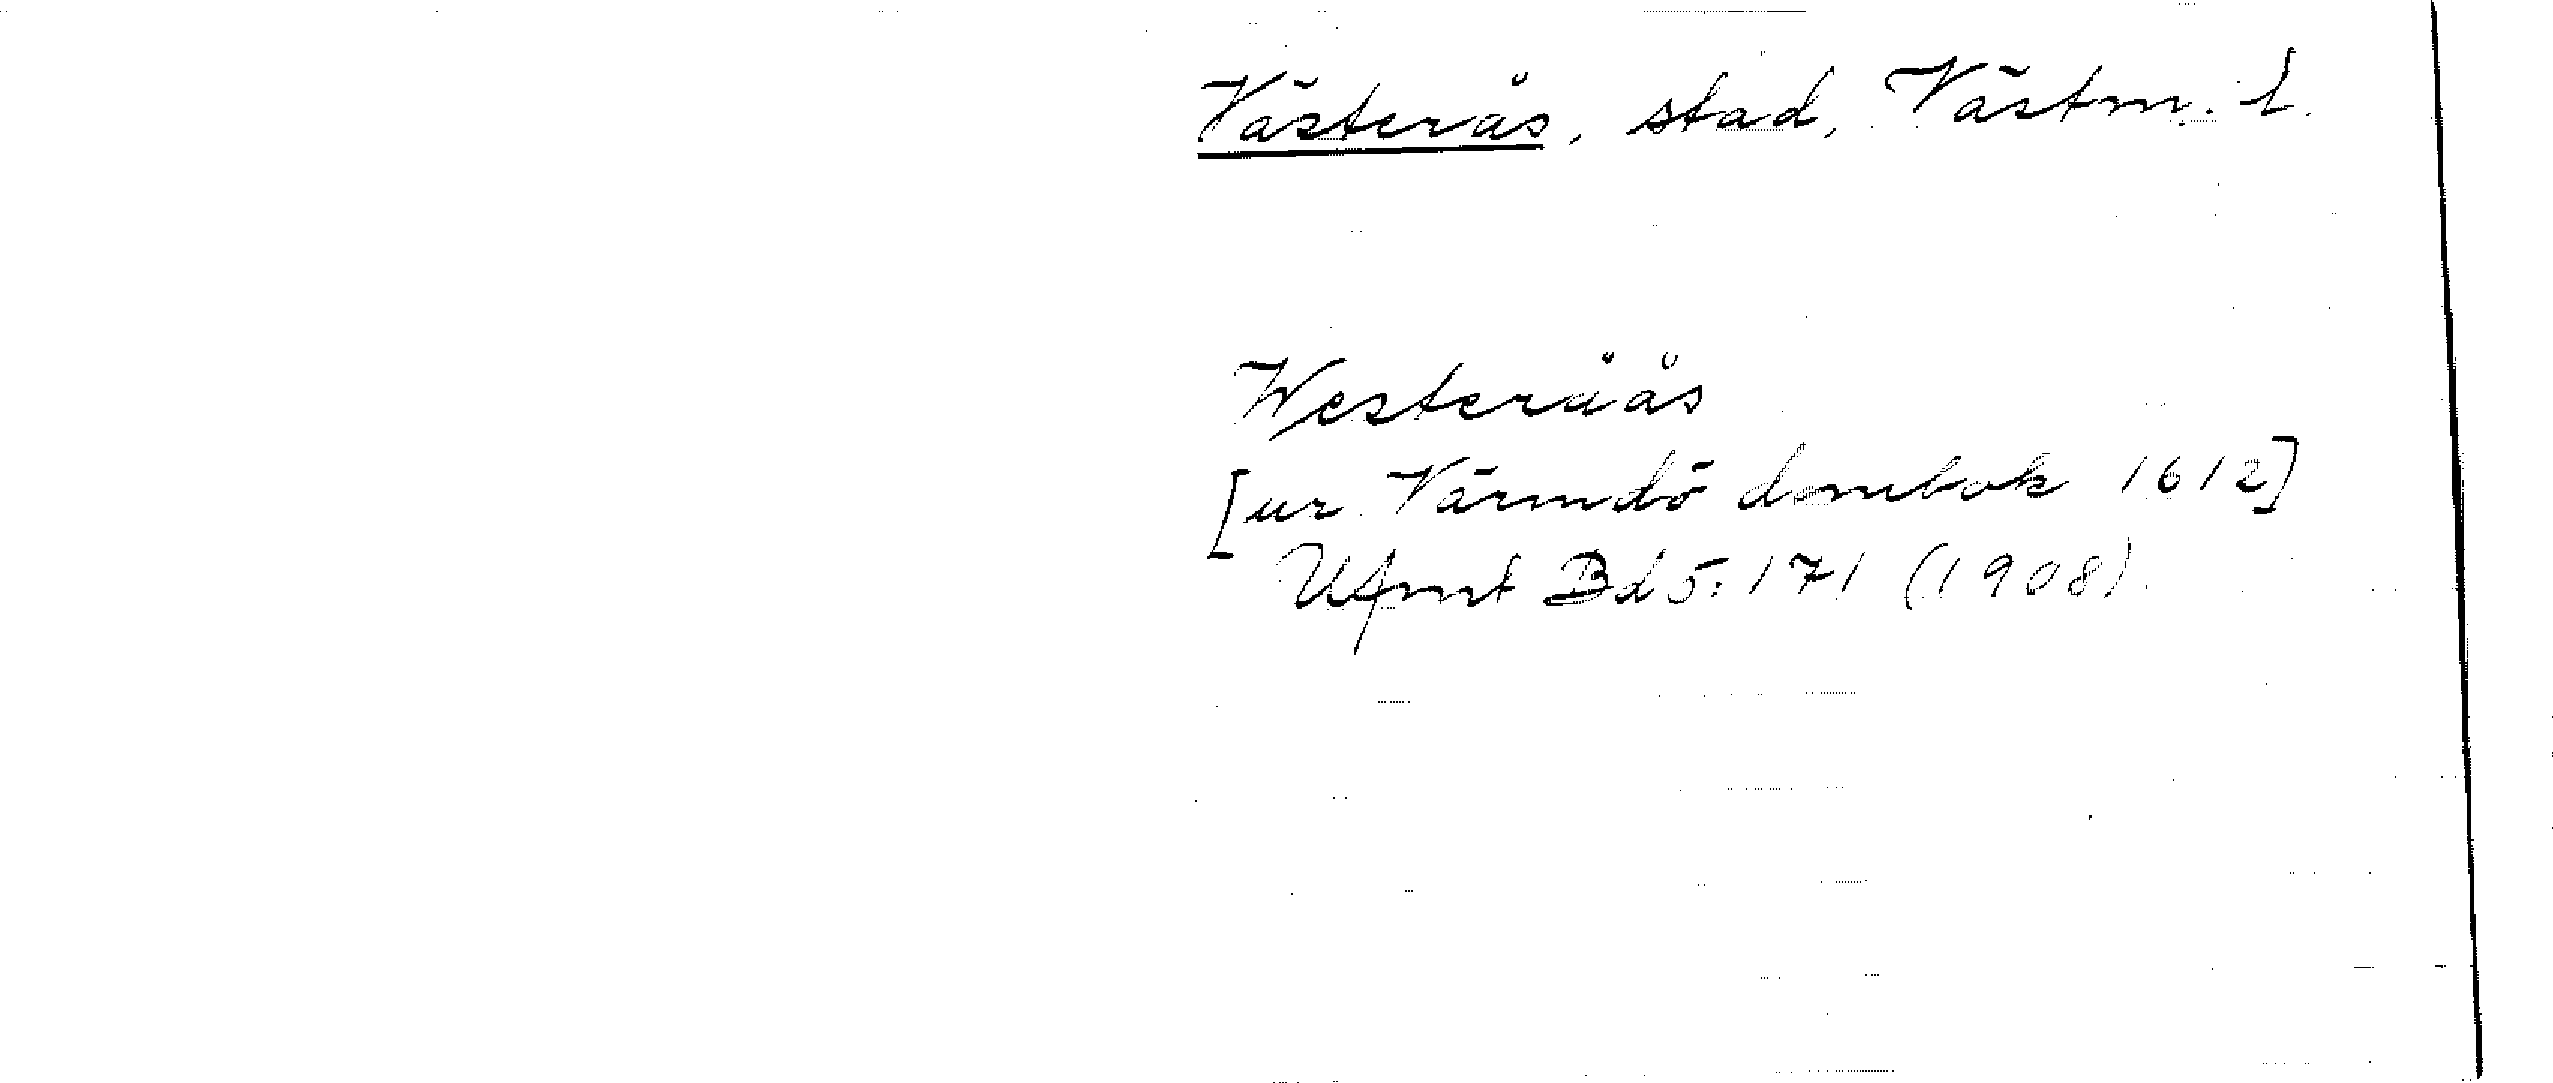 Västerås, stad, Västm. l.
Westeråås
[ur Värmdö dombok 1612]
Ufmt Bd 5: 171 (1908).